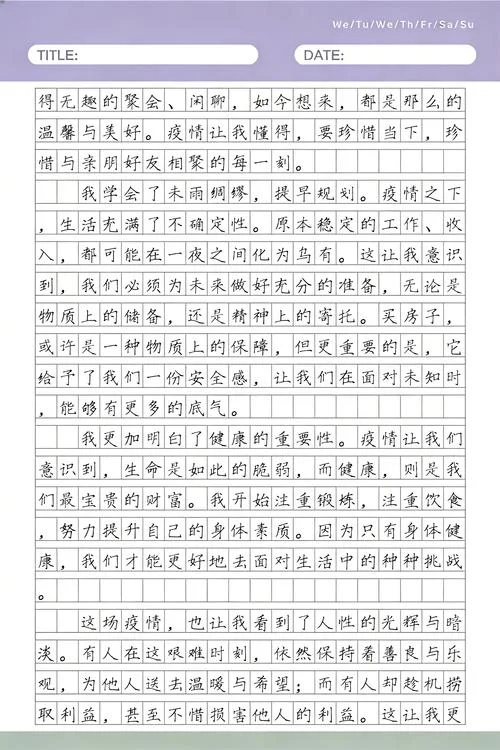 We/Tu/We/Th/Fr/Sa/Su
TITLE:
DATE:
得无趣的聚会、闲聊，如今想来，都是那么的
温馨与美好。疫情让我懂得，要珍惜当下，珍
惜与亲朋好友相聚的每一刻。
我学会了未雨绸缪，提早规划。疫情之下
，生活充满了不确定性。原本稳定的工作、收
入，都可能在一夜之间化为乌有。这让我意识
到，我们必须为未来做好充分的准备，无论是
物质上的储备，还是精神上的寄托。买房子，
或许是一种物质上的保障，但更重要的是，它
给予了我们一份安全感，让我们在面对未知时
，能够有更多的底气。
我更加明白了健康的重要性。疫情让我们
意识到，生命是如此的脆弱，而健康，则是我
们最宝贵的财富。我开始注重锻炼，注重饮食
，努力提升自己的身体素质。因为只有身体健
康，我们才能更好地去面对生活中的种种挑战
。
这场疫情，也让我看到了人性的光辉与暗
淡。有人在这艰难时刻，依然保持着善良与乐
观，为他人送去温暖与希望；而有人却趁机捞
取利益，甚至不惜损害他人的利益。这让我更